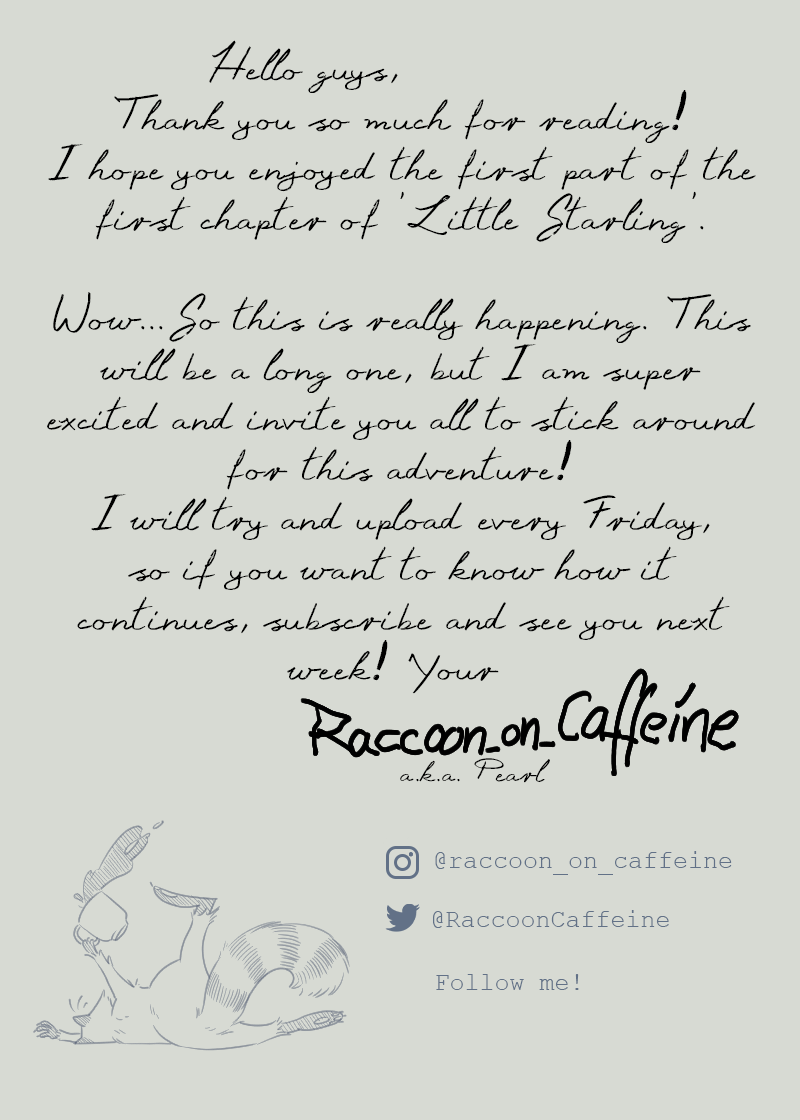 Hello guys,
Thank you so much for reading!
I hope you enjoyed the first part of the
first chapter of 'Little Starling'.
Wow... So this is really happening. This
will be a long one, but I am super
excited and invite you all to stick around
for this adventure!
I will try and upload every Friday,
so if you want to know how it
continues, subscribe and see you next
week! Your
Raccoon_on_Caffeine
a.k.a. Pearl
@raccoon_on_caffeine
@RaccoonCaffeine
Follow me!